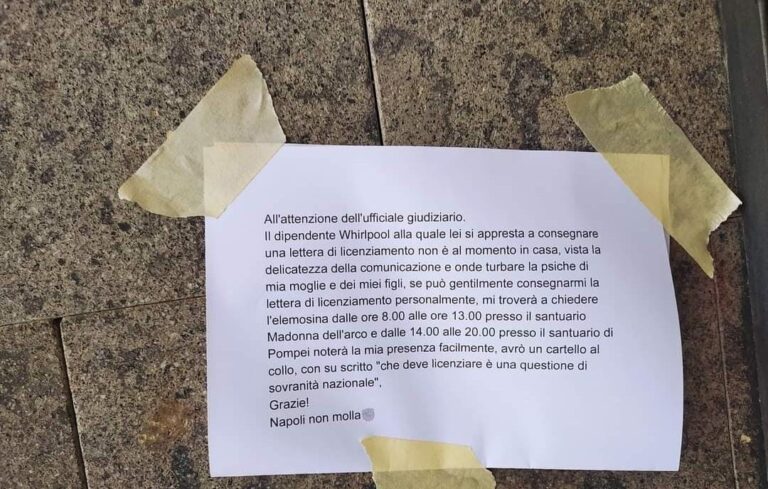 All'attenzione dell'ufficiale giudiziario.
Il dipendente Whirlpool alla quale lei si appresta a consegnare
una lettera di licenziamento non è al momento in casa, vista la
delicatezza della comunicazione e onde turbare la psiche di
mia moglie e dei miei figli, se può gentilmente consegnarmi la
lettera di licenziamento personalmente, mi troverà a chiedere
l'elemosina dalle ore 8.00 alle ore 13.00 presso il santuario
Madonna dell'arco e dalle 14.00 alle 20.00 presso il santuario di
Pompei noterà la mia presenza facilmente, avrò un cartello al
collo, con su scritto "che deve licenziare è una questione di
sovranità nazionale".
Grazie!
Napoli non molla✊